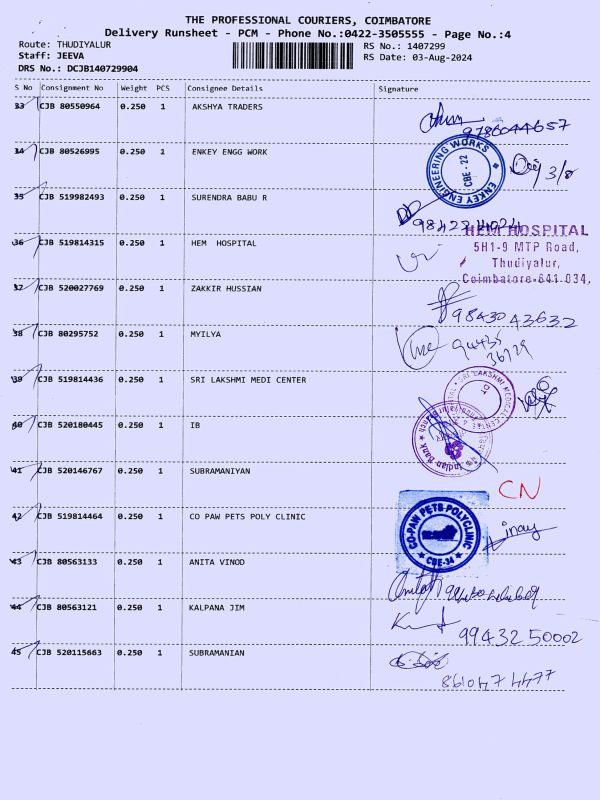 THE PROFESSIONAL COURIERS, COIMBATORE
Delivery Runsheet - PCM - Phone No.:0422-3505555 - Page No.:4
Route: THUDIYALUR
Staff: JEEVA
DRS No.: DCJB140729904
RS No.: 1407299
RS Date: 03-Aug-2024
S No Consignment No Weight PCS Consignee Details Signature
33 CJB 80550964 0.250 1 AKSHYA TRADERS
9786044657
34 CJB 80526995 0.250 1 ENKEY ENGG WORK
ENKEY ENGINEERING WORKS
CBE - 22
3/8
35 CJB 519982493 0.250 1 SURENDRA BABU R
36 CJB 519814315 0.250 1 HEM HOSPITAL
HEM HOSPITAL
5H1-9 MTP Road,
Thudiyalur,
Coimbatore-641 034,
37 CJB 520027769 0.250 1 ZAKKIR HUSSIAN
9843043632
38 CJB 80295752 0.250 1 MYILYA
39 CJB 519814436 0.250 1 SRI LAKSHMI MEDI CENTER
SRI LAKSHMI MEDICAL CENTRE
40 CJB 520180445 0.250 1 IB
Indian Bank
41 CJB 520146767 0.250 1 SUBRAMANIYAN
CN
42 CJB 519814464 0.250 1 CO PAW PETS POLY CLINIC
CO-PAW PETS POLYCLINIC
CBE-34
43 CJB 80563133 0.250 1 ANITA VINOD
44 CJB 80563121 0.250 1 KALPANA JIM
99432 50002
45 CJB 520115663 0.250 1 SUBRAMANIAN
861047 4477